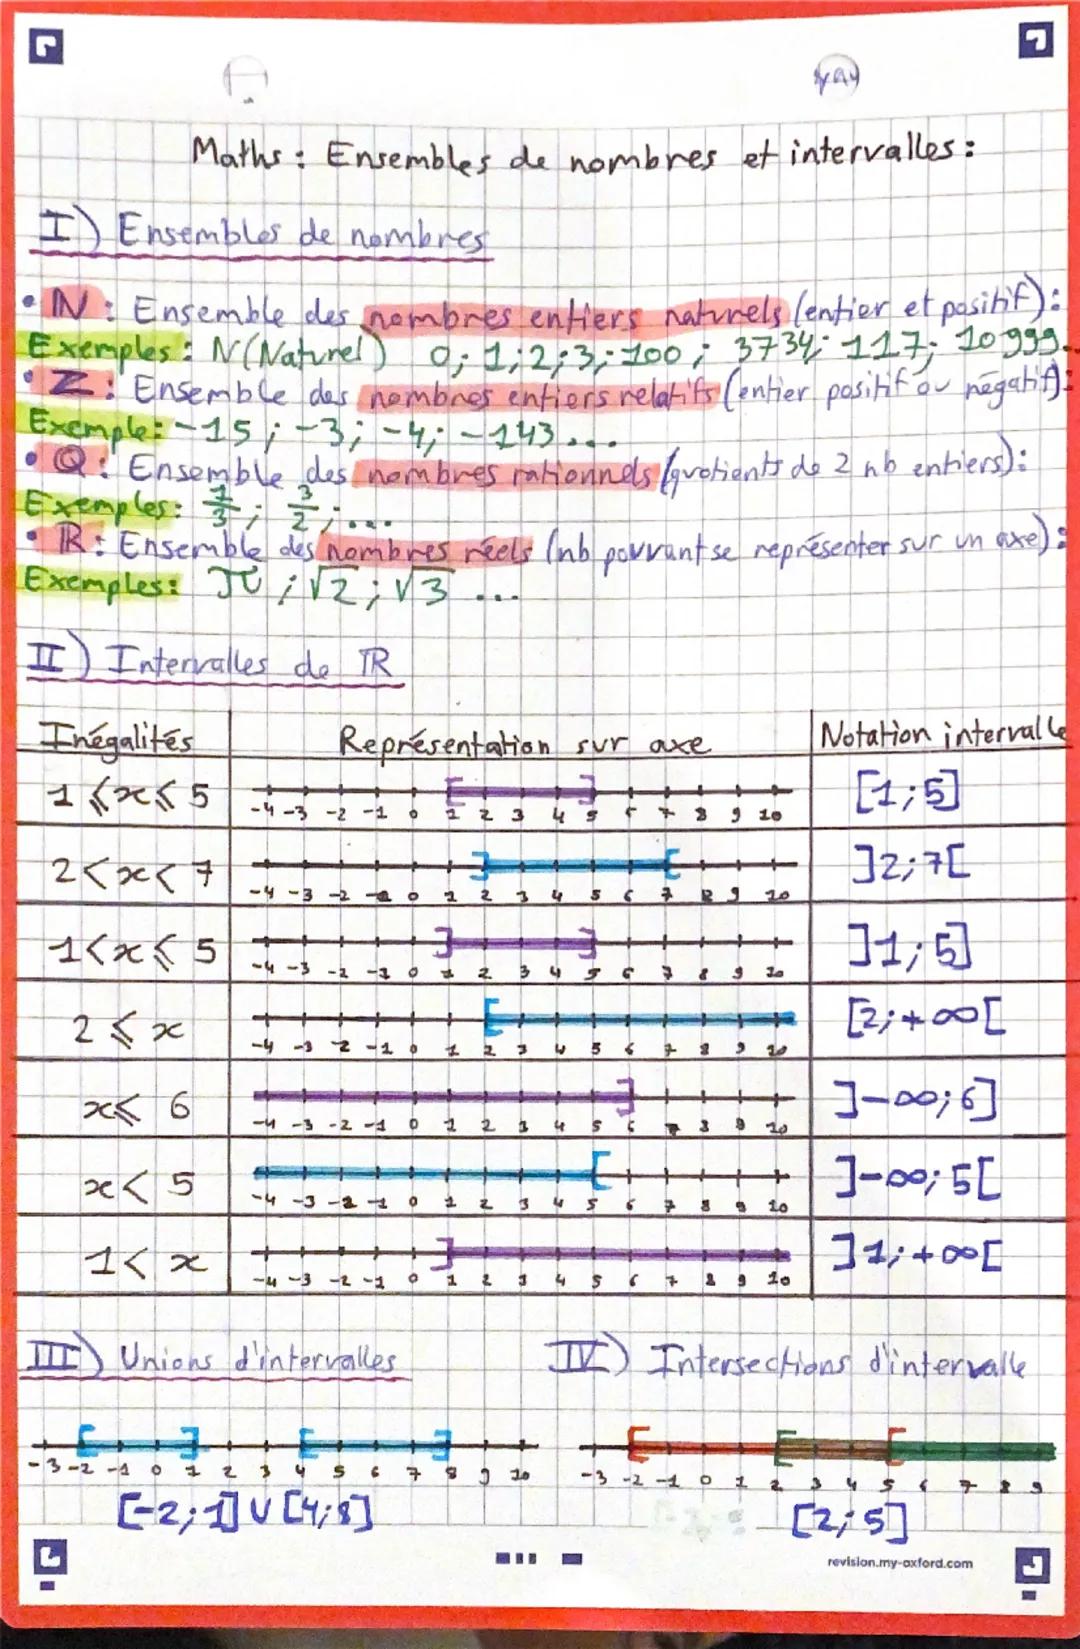 Maths : Ensembles de nombres et intervalles :
I) Ensembles de nombres
• ℕ : Ensemble des nombres entiers naturels (entier et positif) :
Exemples : N (Naturel) 0; 1; 2; 3; 100; 3734; 117; 10999...
• ℤ : Ensemble des nombres entiers relatifs (entier positif ou négatif) :
Exemple : -15 ; -3; -4; -143...
• ℚ : Ensemble des nombres rationnels (quotients de 2 nb entiers) :
Exemples : 1/3 ; 3/2 ; ...
• ℝ : Ensemble des nombres réels (nb pouvant se représenter sur un axe) :
Exemples : π ; √2 ; √3 ...
II) Intervalles de ℝ
Inégalités Représentation sur axe Notation intervalle
1 ⩽ x ⩽ 5 -4 -3 -2 -1 0 1 2 3 4 5 6 7 8 9 10 [1;5]
2 < x < 7 -4 -3 -2 -1 0 1 2 3 4 5 6 7 8 9 10 ]2;7[
1 < x ⩽ 5 -4 -3 -2 -1 0 1 2 3 4 5 6 7 8 9 10 ]1;5]
2 ⩽ x -4 -3 -2 -1 0 1 2 3 4 5 6 7 8 9 10 [2;+∞[
x ⩽ 6 -4 -3 -2 -1 0 1 2 3 4 5 6 7 8 9 10 ]-∞;6]
x < 5 -4 -3 -2 -1 0 1 2 3 4 5 6 7 8 9 10 ]-∞;5[
1 < x -4 -3 -2 -1 0 1 2 3 4 5 6 7 8 9 10 ]1;+∞[
III) Unions d'intervalles
-3 -2 -1 0 1 2 3 4 5 6 7 8 9 10
[-2;1] ∪ [4;8]
IV) Intersections d'intervalle
-3 -2 -1 0 1 2 3 4 5 6 7 8 9
[2;5]
revision.my-oxford.com